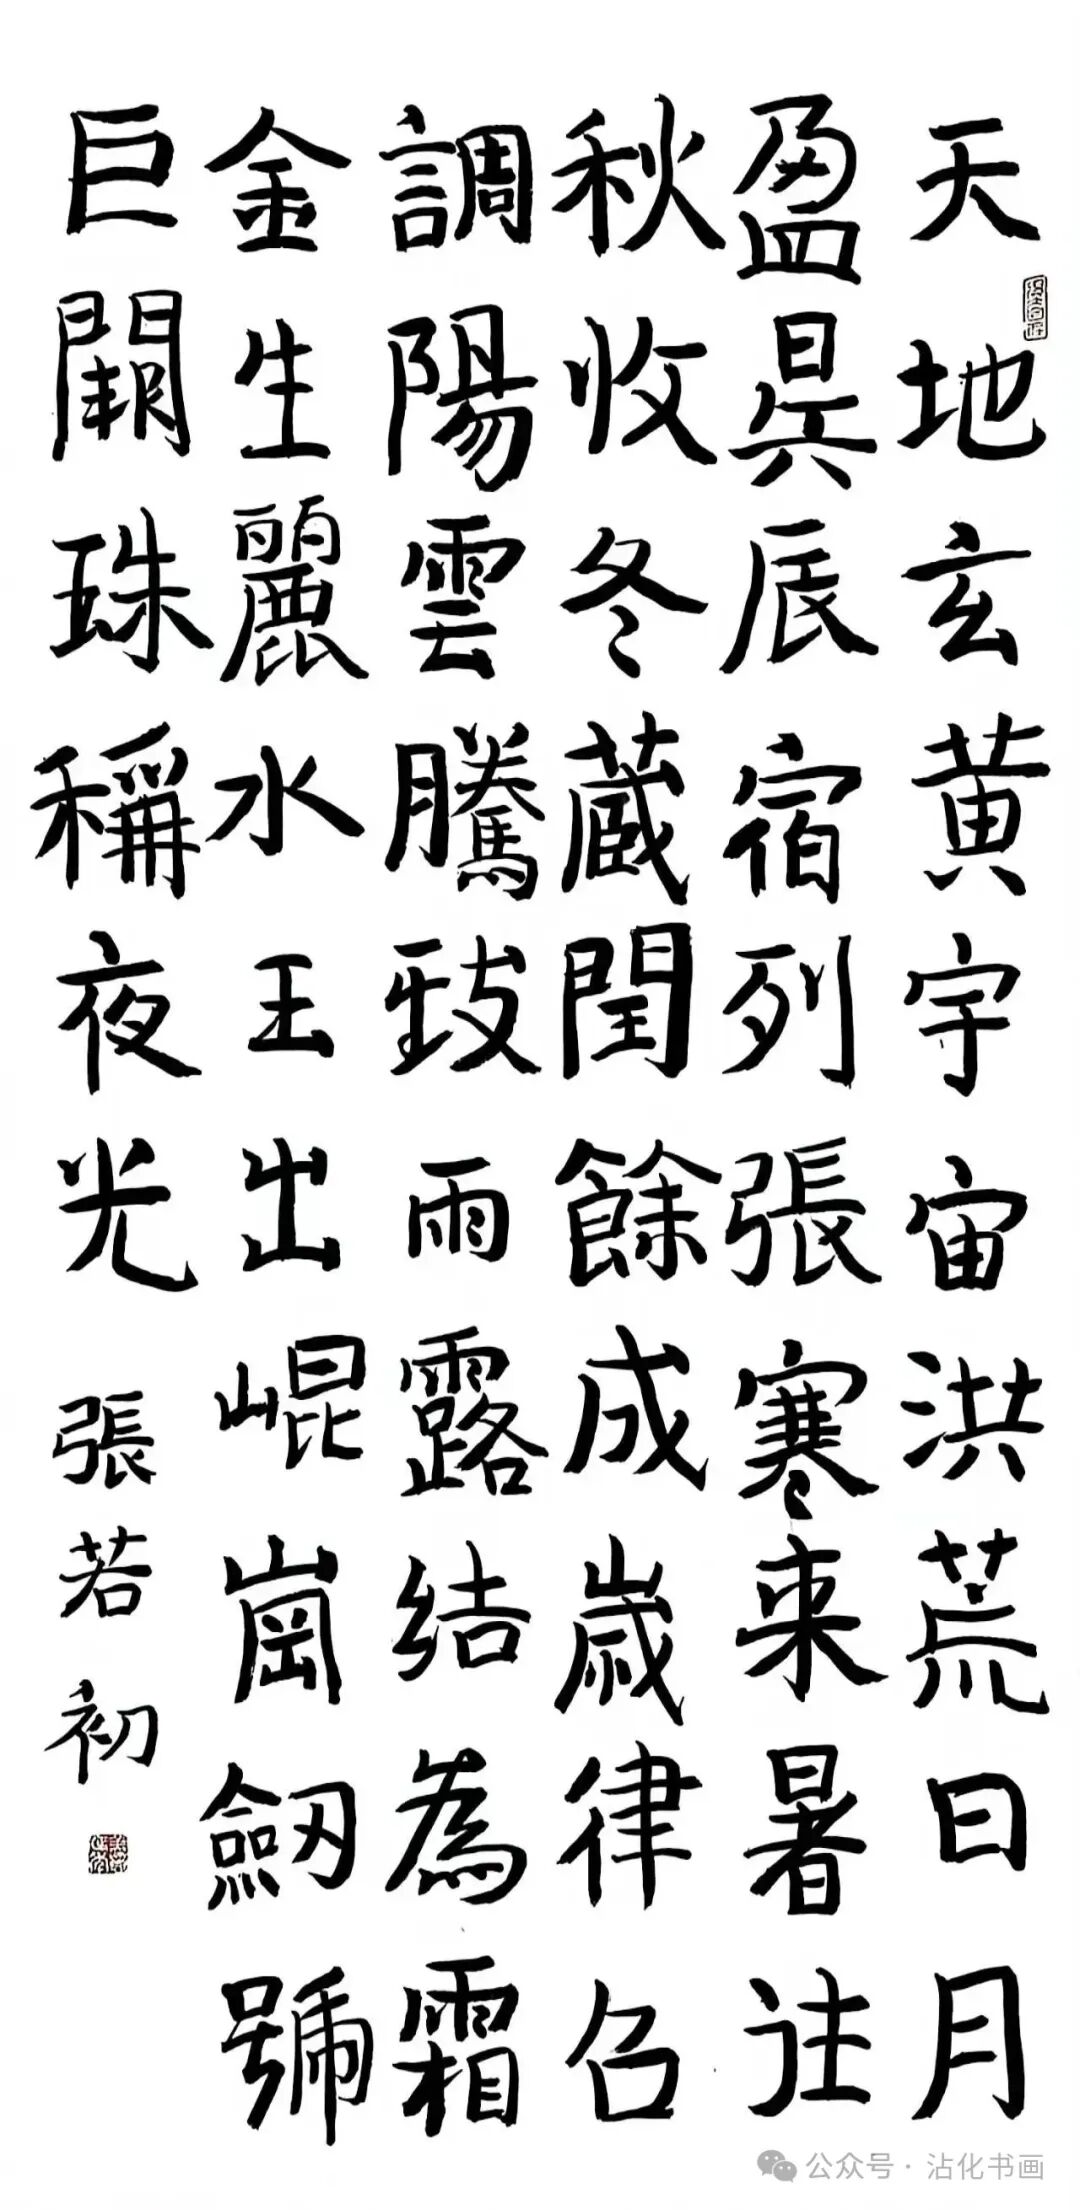 天地玄黄宇宙洪荒日月
盈昃辰宿列張寒来暑往
秋收冬蔵閏餘成歲律召
調陽雲騰致雨露結為霜
金生麗水王出崐崗劔號
巨闕珠稱夜光
張若初
公众号·沾化书画